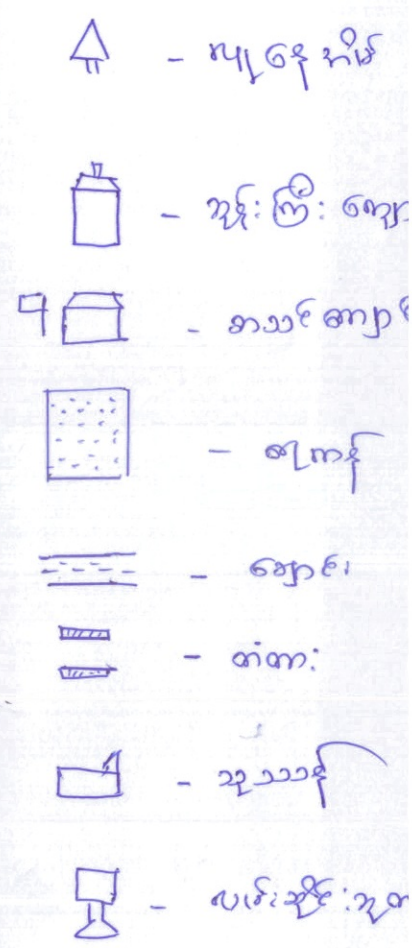 - လူနေအိမ်
- ဘုန်းကြီးကျော
- စာသင်ကျောင်
- ရေကန်
- ချောင်း
- တံတား
- သုသာန်
- လမ်းဆိုင်းဘုတ